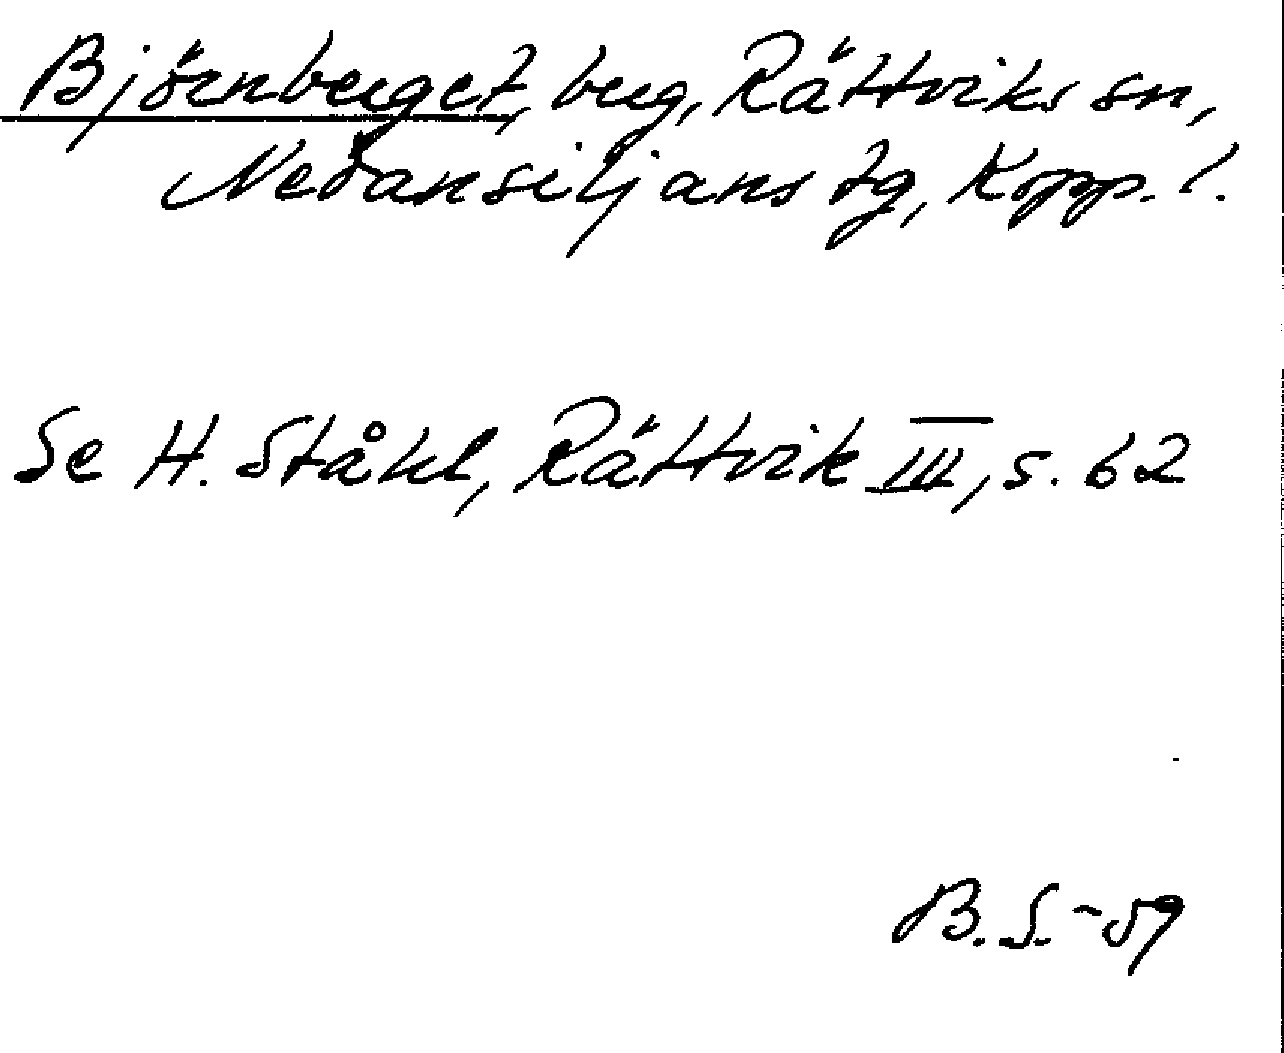 Björnberget, berg, Rättviks sn,
Nedansiljans tg, Kopp. l.
Se H. Ståhl, Rättvik III, s. 62
B. S. -59